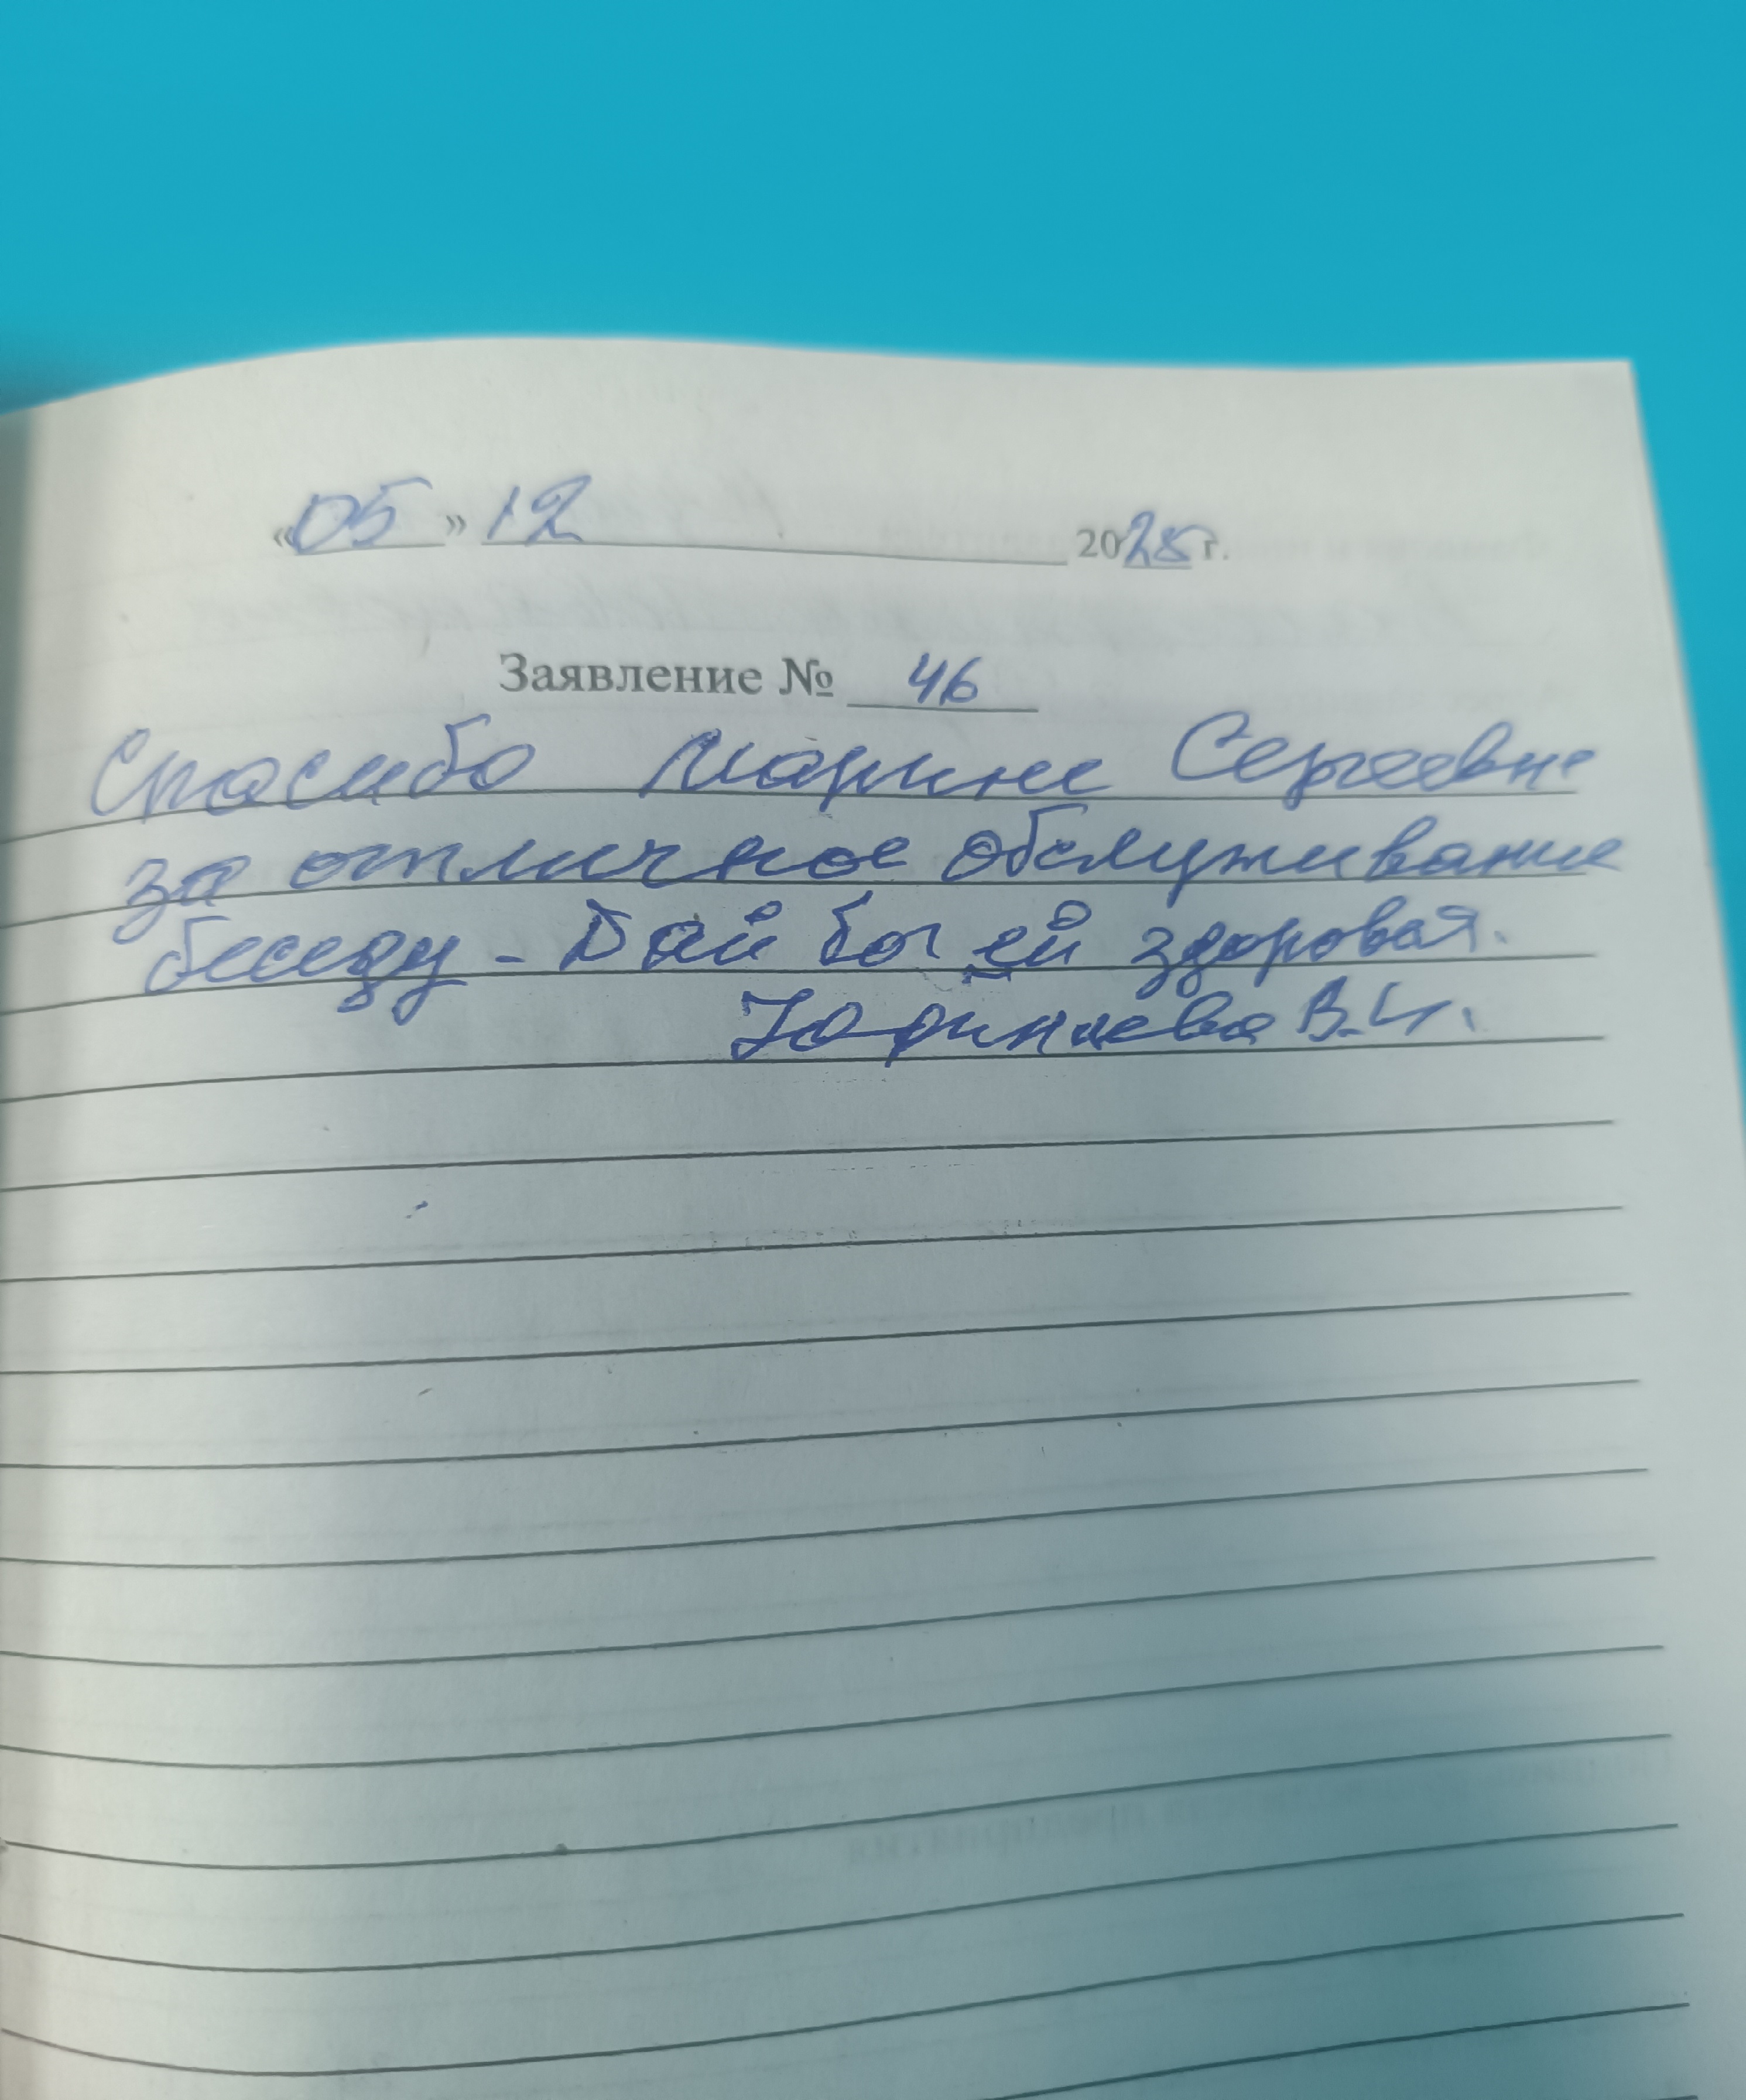 «05» 12 2025 г.
Заявление № 46
Спасибо Марине Сергеевне
за отличное обслуживание
беседу - Дай бог ей здоровая.
В.И.